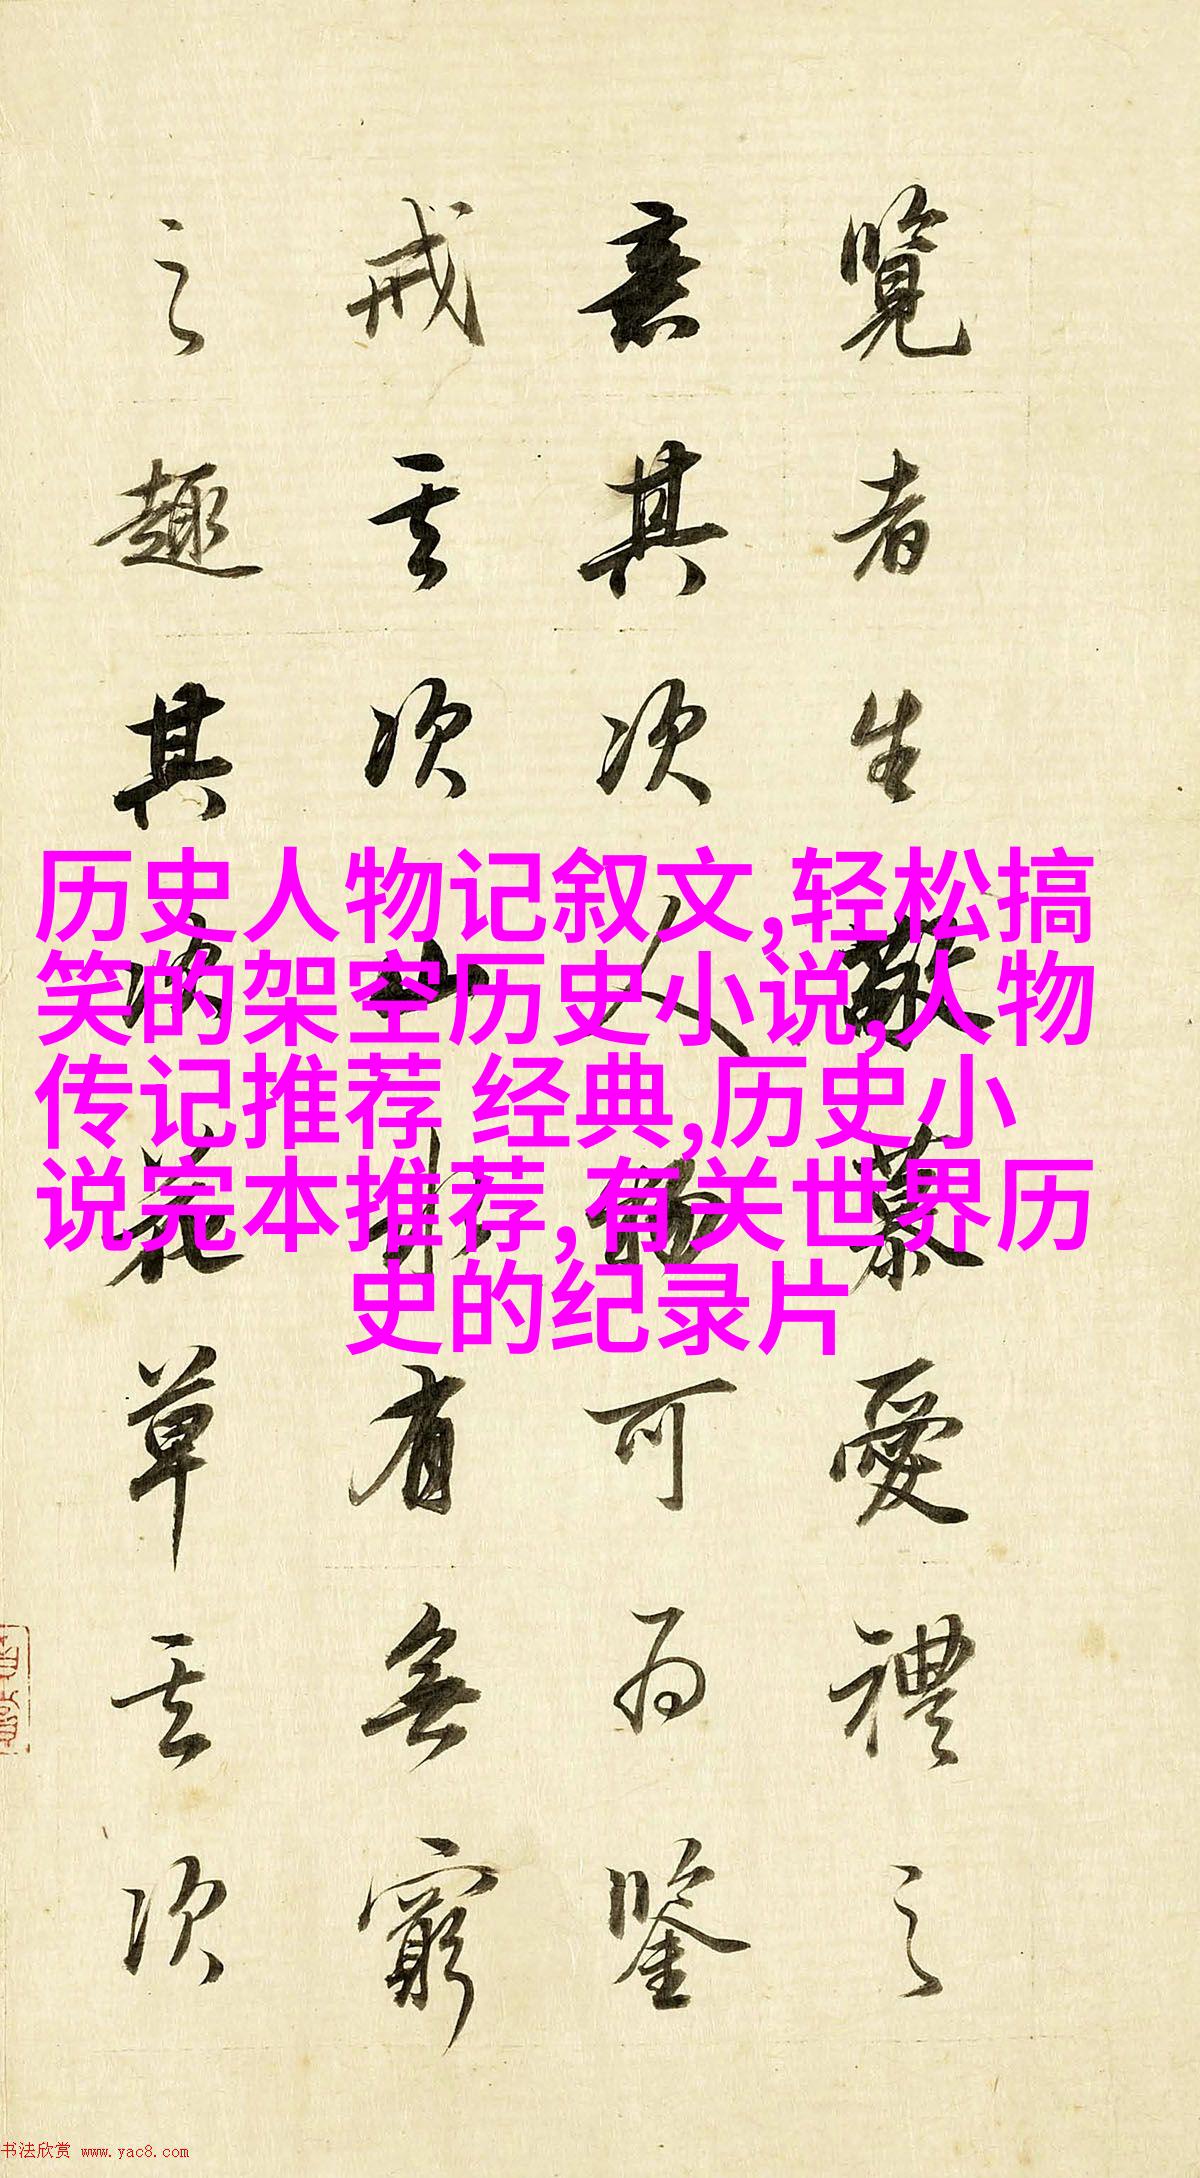 覽者生敬慕愛禮之
意其次人物可為鑒
戒其次山水有無窮
之趣其次花草其次
历史人物记叙文,轻松搞
笑的架空历史小说,人物
传记推荐 经典,历史小
说完本推荐,有关世界历
史的纪录片
书法欣赏 www.yac8.com